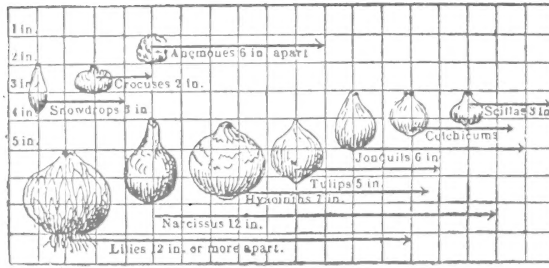 1 in.
2 in.
Anemones 6 in. apart
3 in.
Crocuses 2 in.
4 in.
Snowdrops 3 in
Scillas 3 in.
Colchicums
5 in.
Jonquils 6 in
Tulips 5 in.
Hyacinths 7 in.
Narcissus 12 in.
Lilies 12 in. or more apart.